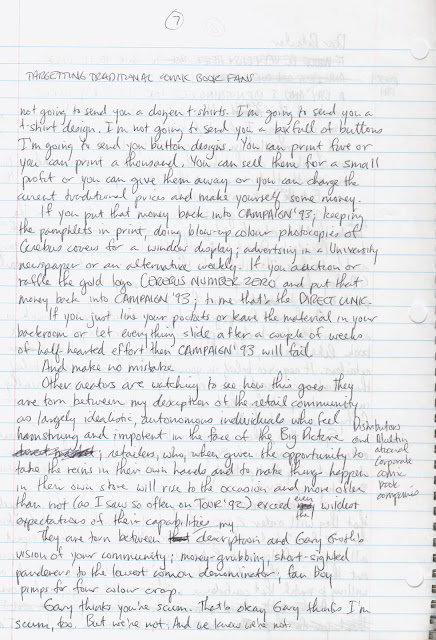 7
TARGETTING TRADITIONAL COMIC BOOK FANS
not going to send you a dozen t-shirts. I'm going to send you a
t-shirt design. I'm not going to send you a box full of buttons
I'm going to send you button designs. You can print five or
you can print a thousand. You can sell them for a small
profit or you can give them away or you can charge the
current traditional prices and make yourself some money.
If you put that money back into CAMPAIGN '93; keeping
the pamphlets in print, doing blow-up colour photocopies of
Cerebus covers for a window display; advertising in a University
newspaper or an alternative weekly. If you auction or
raffle the gold logo CEREBUS NUMBER ZERO and put that
money back into CAMPAIGN '93; to me that's the DIRECT LINE.
If you just line your pockets or leave the material in your
backroom or let everything slide after a couple of weeks
of half-hearted effort then CAMPAIGN '93 will fail.
And make no mistake
Other creators are watching to see how this goes. They
are torn between my description of the retail community
as largely idealistic, autonomous individuals who feel
hamstrung and impotent in the face of the Big Picture Distributors and Multinational Corporate comic book companies
; retailers, who, when given the opportunity to
take the reins in their own hands and to make things happen
in their own store will rise to the occasion and more often
than not (as I saw so often on TOUR '92) exceed even the wildest
expectations of their capabilities
They are torn between my description and Gary Groth's
vision of your community; money-grubbing, short-sighted
panderers to the lowest common denominator; fan boy
pimps for four colour crap.
Gary thinks you're scum. That's okay, Gary thinks I'm
scum, too. But we're not. And we know we're not.